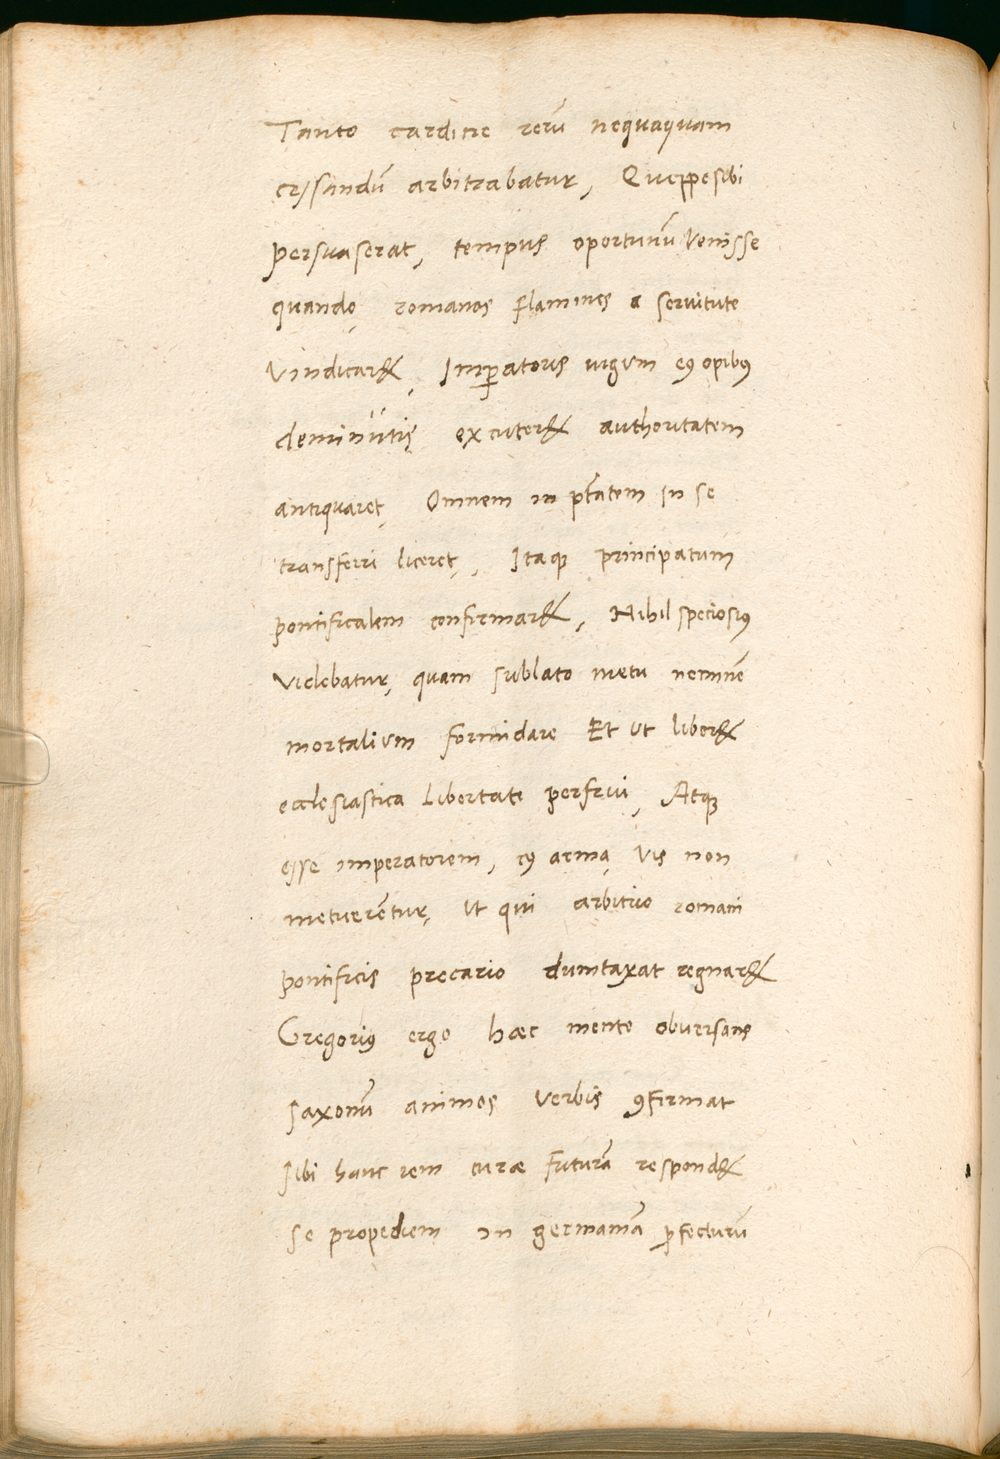 Tanto cardine rerū nequaquam
cessandū arbitrabatur, Queppe sibi
persuaserat, tempus oportunū venisse
quando, romanos flamines a servitute
vindicaret, Imp̱atoris iugum eꝰ opibꝰ
deminutis, excuteret authoritatem
antiquaret, Omnem in ptātem in se
transferri liceret,, Itaqꝫ principatum
pontificalem confirmaret, Nihil speciosiꝰ
videbatur, quam sublato metu neminē
mortalium formidare Et ut liberet
ecclesiastica libertate perfrui, Atqꝫ
esse imperatorem, cꝰ arma, vis non
metuerētur, ut qui arbitrio romani
pontificis precario dumtaxat regnaret
Gregoriꝰ ergo hæc mente obversans
saxonū animos verbis ꝯfirmat
sibi hanc rem curæ futurā respondet
se propediem in germaniā ꝓfecturū